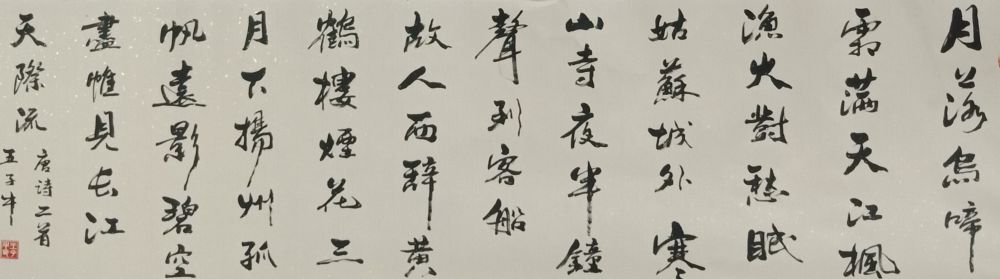 月落烏啼
霜滿天江楓
漁火對愁眠
姑蘇城外寒
山寺夜半鐘
聲到客船
故人西辭黃
鶴樓煙花三
月下揚州孤
帆遠影碧空
盡惟見長江
天際流
唐诗二首